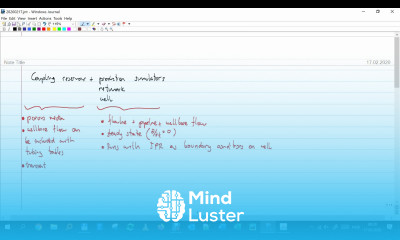 20200217.jnt - Windows Journal
File Edit View Insert Actions Tools Help
Note Title
17.02.2020
Coupling reservoir + production simulators
network
well
• porous media
• wellbore flow can
be included with
tubing tables
• transient
• flowline + pipeline + wellbore flow
• steady state (∂/∂t = 0)
• runs with IPR as boundary condition on well
Mind
Luster